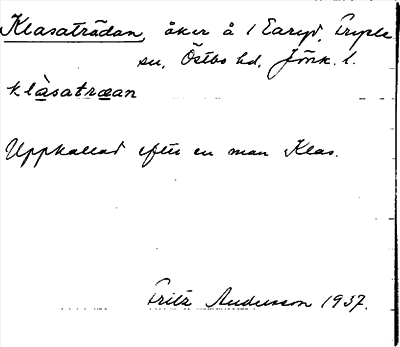 Klasaträdan, åker å 1 Earyd, Tryele
sn, Östbo hd, Jönk. l.
klàsatræan
Uppkallad efter en man Klas.
Fritz Andersson 1937.